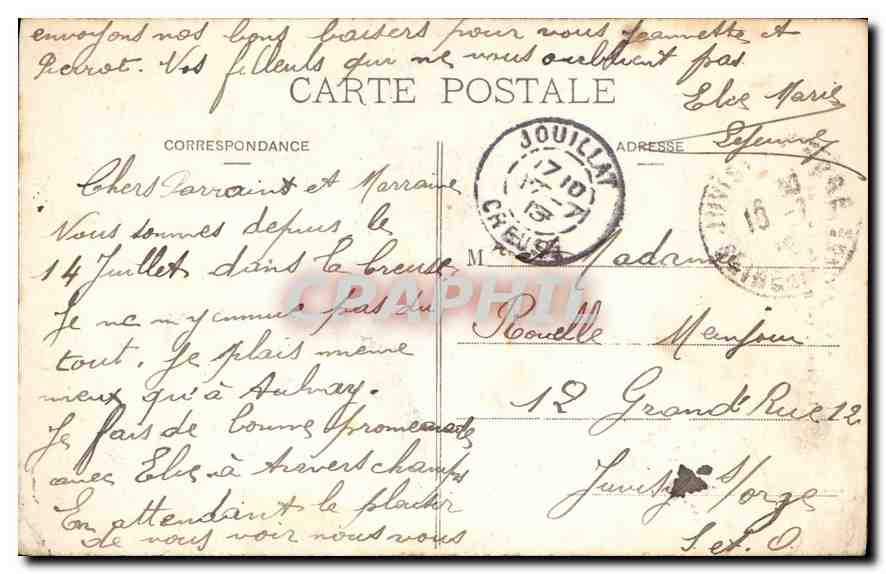 envoyons nos bons baisers pour vous Jeannette et
Pierrot. Vos filleuls qui ne vous oublient pas
Elie Marie
Lejeune
CARTE POSTALE
CORRESPONDANCE
ADRESSE
JOUILLAT
17 10
17 - 7
13
CREUSE
JUVISY
16
Chers Parraint et Marraine
Vous sommes depuis le
14 Juillet dans la Creuse
Je ne m'y ennuie pas du
tout. Je plais meme
mieux qu'à Aulnay.
Je fais de bonne promenade
avec Elie à travers champs
En attendant le plaisir
de vous voir nous vous
M Madame
Rouelle Menjou
12 Grand'Rue 12
Juvisy s/ Orge
S. et. O.
CPAPHIL